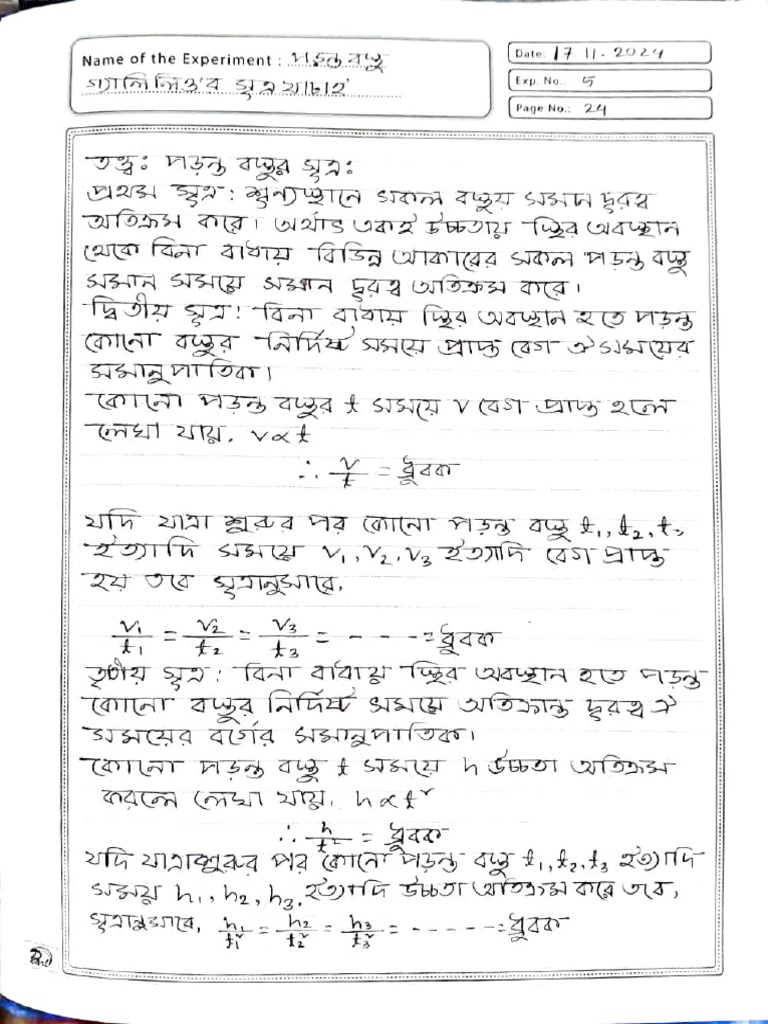 Name of the Experiment : পড়ন্ত বস্তু
গ্যালিলিও'র সূত্র যাচাই
Date: 17.11.2024
Exp. No.: 5
Page No.: 24
তত্ত্ব: পড়ন্ত বস্তুর সূত্র:
প্রথম সূত্র: শূন্যস্থানে সকল বস্তুয় সমান দূরত্ব
অতিক্রম করে। অর্থাৎ একই উচ্চতায় স্থির অবস্থান
থেকে বিনা বাধায় বিভিন্ন আকারের সকল পড়ন্ত বস্তু
সমান সময়ে সমান দূরত্ব অতিক্রম করে।
দ্বিতীয় সূত্র: বিনা বাধায় স্থির অবস্থান হতে পড়ন্ত
কোনো বস্তুর নির্দিষ্ট সময়ে প্রাপ্ত বেগ ঐ সময়ের
সমানুপাতিক।
কোনো পড়ন্ত বস্তুর t সময়ে v বেগ প্রাপ্ত হলে
লেখা যায়, v ∝ t
∴ v/t = ধ্রুবক
যদি যাত্রা শুরুর পর কোনো পড়ন্ত বস্তু t₁, t₂, t₃
ইত্যাদি সময়ে v₁, v₂, v₃ ইত্যাদি বেগ প্রাপ্ত
হয় তবে সূত্রানুসারে,
v₁/t₁ = v₂/t₂ = v₃/t₃ = - - - - = ধ্রুবক
তৃতীয় সূত্র: বিনা বাধায় স্থির অবস্থান হতে পড়ন্ত
কোনো বস্তুর নির্দিষ্ট সময়ে অতিক্রান্ত দূরত্ব ঐ
সময়ের বর্গের সমানুপাতিক।
কোনো পড়ন্ত বস্তু t সময়ে h উচ্চতা অতিক্রম
করলে লেখা যায়, h ∝ t²
∴ h/t² = ধ্রুবক
যদি যাত্রাশুরুর পর কোনো পড়ন্ত বস্তু t₁, t₂, t₃ ইত্যাদি
সময় h₁, h₂, h₃ ইত্যাদি উচ্চতা অতিক্রম করে তবে,
সূত্রানুসারে, h₁/t₁² = h₂/t₂² = h₃/t₃² = - - - - - = ধ্রুবক